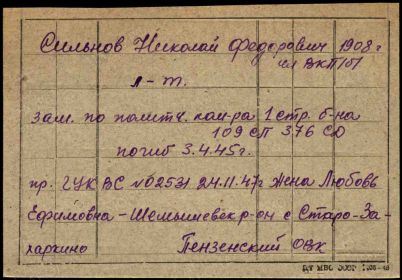 Сильнов Николай Федорович 1908 г
чл ВКП/б/
л-т.
зам. по политч. ком-ра 1 стр. б-на
109 СП 376 СД
погиб 3.4.45г.
пр. ГУК ВС №02531 24.11.47г жена Любовь
Ефимовна - Шемышевск р-он с Старо-За-
харкино Пензенский ОВК